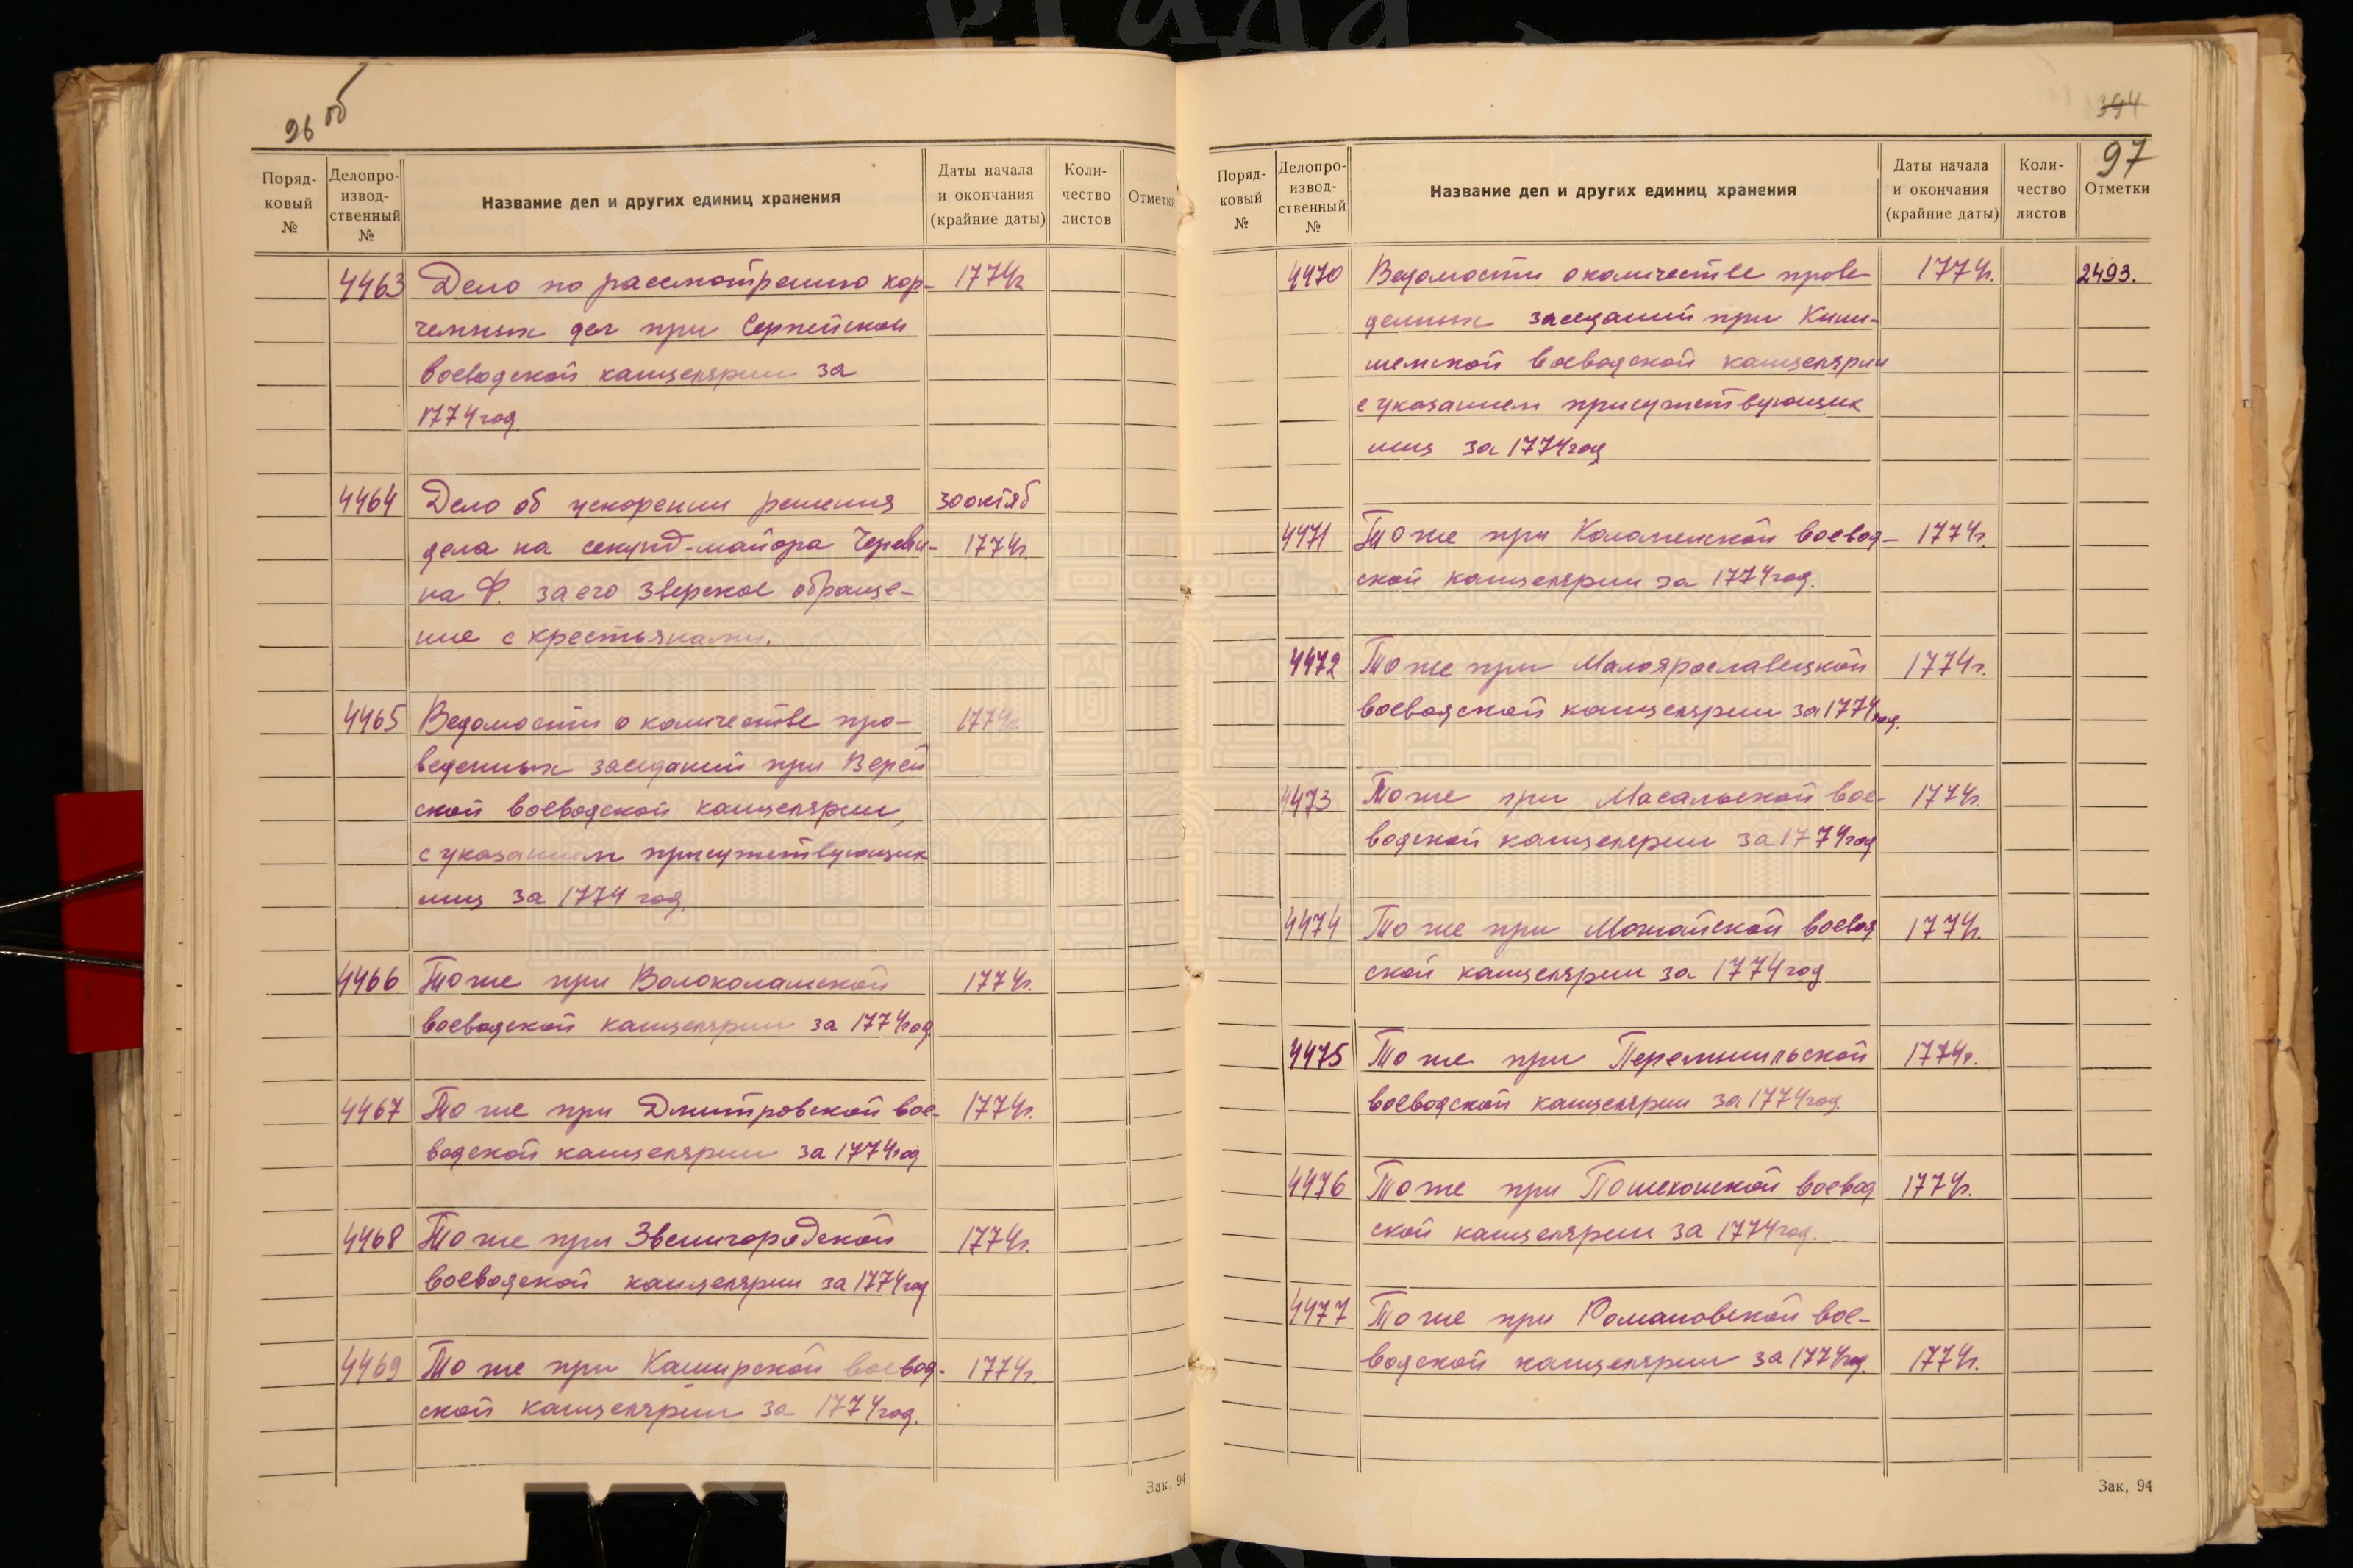 96 об
Поряд-
ковый
№
Делопро-
извод-
ственный
№
Название дел и других единиц хранения
Даты начала
и окончания
(крайние даты)
Коли-
чество
листов
Отметки
4463 Дело по рассмотрению кор- 1774г
чемных дел при Серпейской
воеводской канцелярии за
1774 год.
4464 Дело об ускорении решения 30 октяб
дела на секунд-майора Череви- 1774г.
на Ф. за его зверское обраще-
ние с крестьянами.
4465 Ведомости о количестве про- 1774г.
веденных заседаний при Верей
ской воеводской канцелярии,
с указанием присутствующих
лиц за 1774 год.
4466 То же при Волоколамской 1774г.
воеводской канцелярии за 1774 год.
4467 То же при Дмитровской вое- 1774г.
водской канцелярии за 1774 год
4468 То же при Звенигородской 1774г.
воеводской канцелярии за 1774 год
4469 То же при Каширской воевод- 1774г.
ской канцелярии за 1774 год.
Зак. 94
394
97
Поряд-
ковый
№
Делопро-
извод-
ственный
№
Название дел и других единиц хранения
Даты начала
и окончания
(крайние даты)
Коли-
чество
листов
Отметки
4470 Ведомости о количестве прове 1774г. 2493.
денных заседаний при Кине-
шемской воеводской канцелярии
с указанием присутствующих
лиц за 1774 год
4471 То же при Коломенской воевод- 1774г.
ской канцелярии за 1774 год.
4472 То же при Малоярославецкой 1774г.
воеводской канцелярии за 1774 год.
4473 То же при Масальской вое- 1774г.
водской канцелярии за 1774 год
4474 То же при Можайской воевод 1774г.
ской канцелярии за 1774 год
4475 То же при Перемышльской 1774г.
воеводской канцелярии за 1774 год.
4476 То же при Пошехонской воевод 1774г.
ской канцелярии за 1774 год.
4477 То же при Романовской вое-
водской канцелярии за 1774 год. 1774г.
Зак, 94